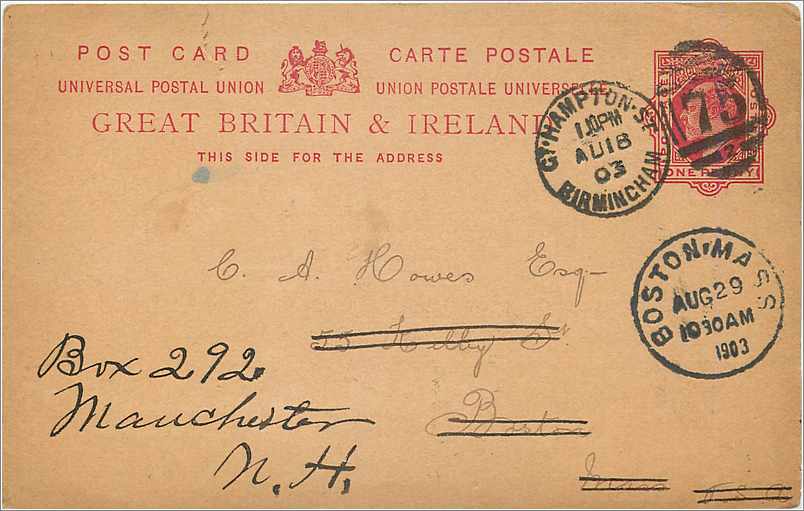 POST CARD CARTE POSTALE
UNIVERSAL POSTAL UNION UNION POSTALE UNIVERSELLE
GREAT BRITAIN & IRELAND
THIS SIDE FOR THE ADDRESS
GT·HAMPTON·ST
1.10PM
AU 18
03
BIRMINGHAM
75
ONE PENNY
BOSTON, MASS
AUG 29
1030AM
1903
C. A. Howes Esq-
55 Kilby St
Boston
Mass U.S.A
Box 292
Manchester
N. H.